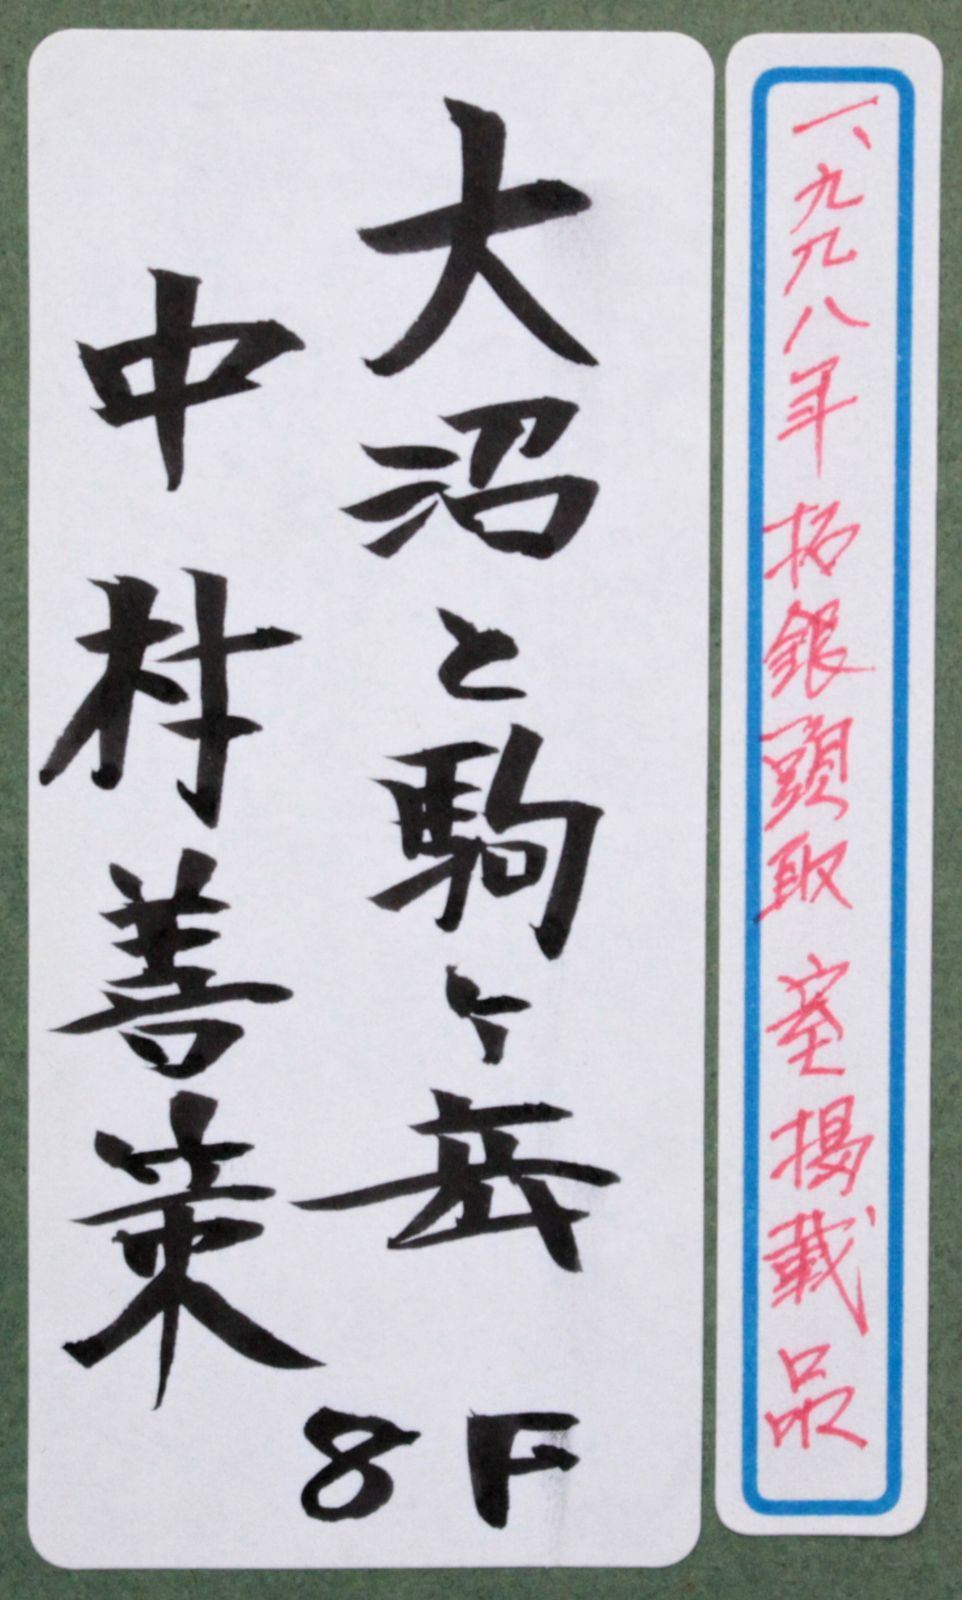 一、九九八年 拓銀頭取室掲載品
大沼と駒ヶ岳
8F
中村善策